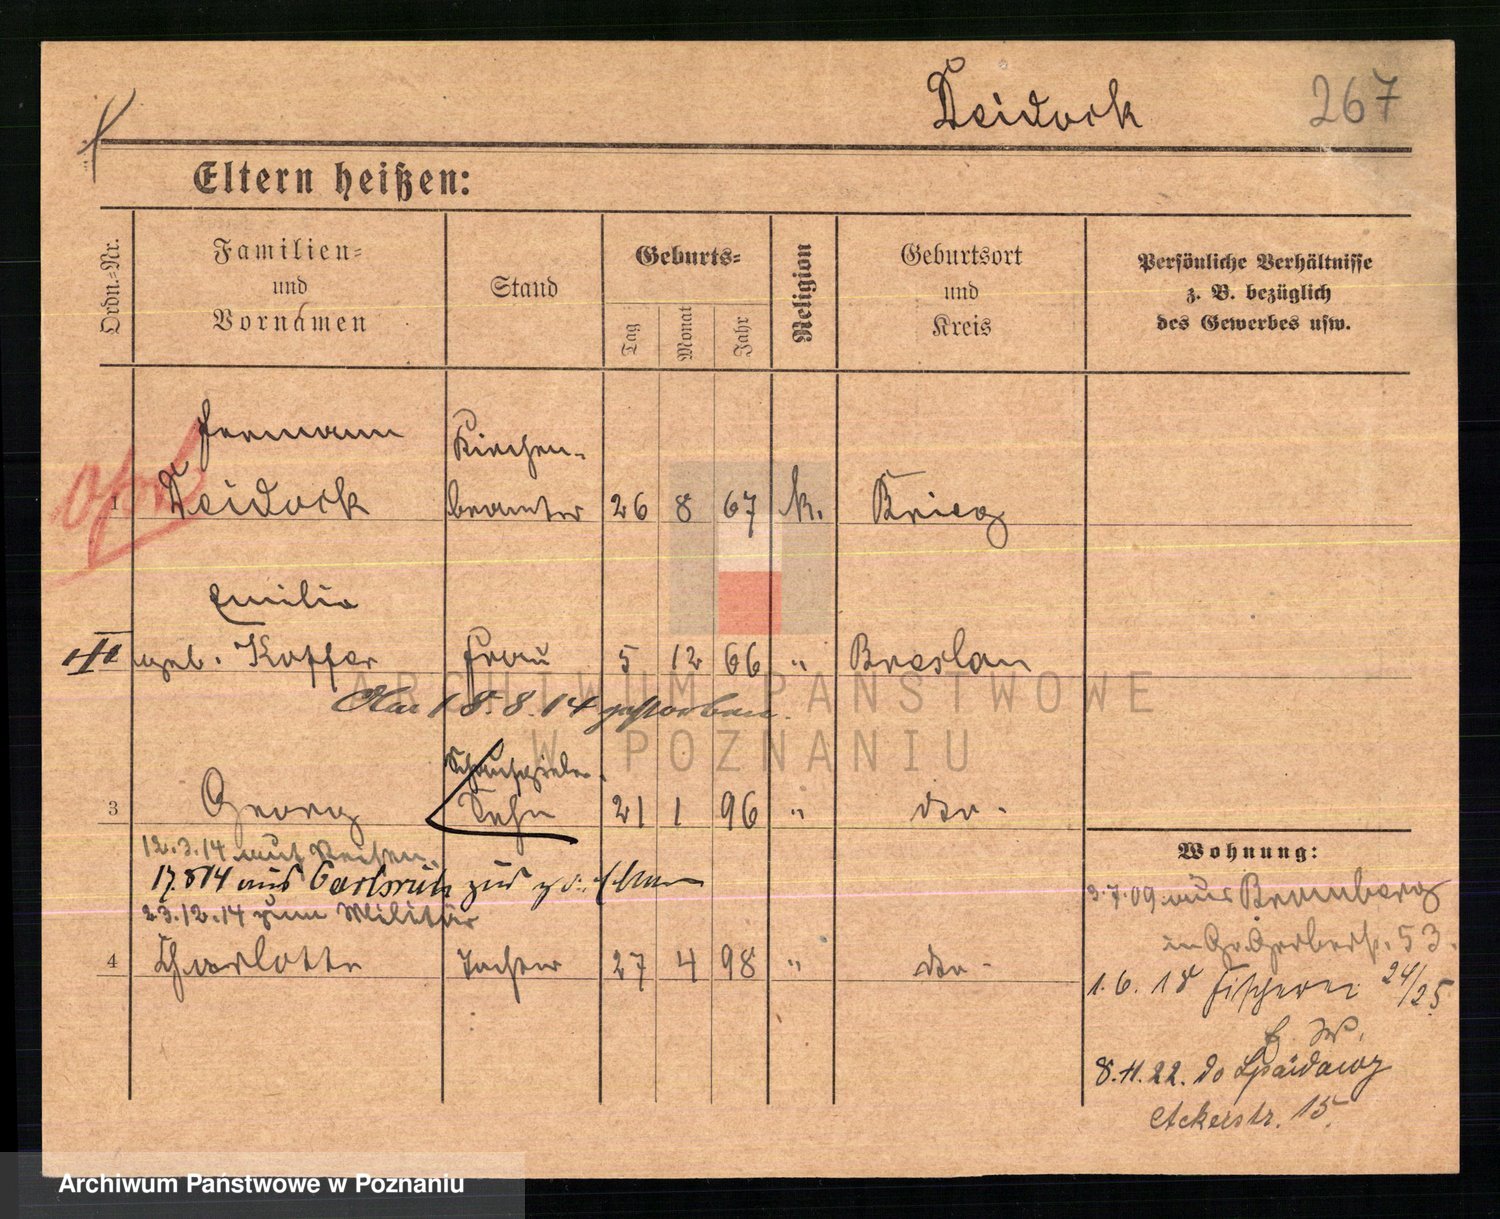 Zeidork
267
Eltern heißen:
Ordn.-Nr.
Familien-
und
Vornamen
Stand
Geburts-
Tag
Monat
Jahr
Religion
Geburtsort
und
Kreis
Persönliche Verhältnisse
z. B. bezüglich
des Gewerbes usw.
Hermann
Kirchen-
1 Zeidork beamter 26 8 67 k. Brieg
Emilie
geb. Koffer Frau 5 12 66 " Breslau
18.8.14 gestorben.
ARCHIWUM PAŃSTWOWE
W POZNANIU
Schauspieler.
3 Georg Sohn 21 1 96 " do.
12.3.14 auf Reisen.
17.8.14 aus Carlsruh
23.12.14 zum Militär
4 Charlotte Tochter 27 4 98 " do.
Wohnung:
3.7.09 aus Bromberg
in Gr. Gerberstr. 53.
1.6.18 Fischerei 24/25
8.11.22. do
Ackerstr. 15.
Archiwum Państwowe w Poznaniu